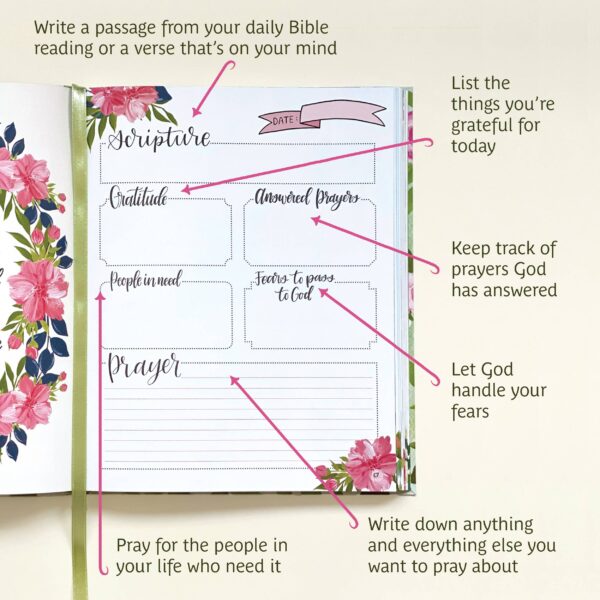 Write a passage from your daily Bible
reading or a verse that's on your mind
List the
things you're
grateful for
today
DATE:
Scripture
Gratitude
Answered Prayers
Keep track of
prayers God
has answered
People in need
Fears to pass
to God
Let God
handle your
fears
Prayer
Write down anything
and everything else you
want to pray about
Pray for the people in
your life who need it